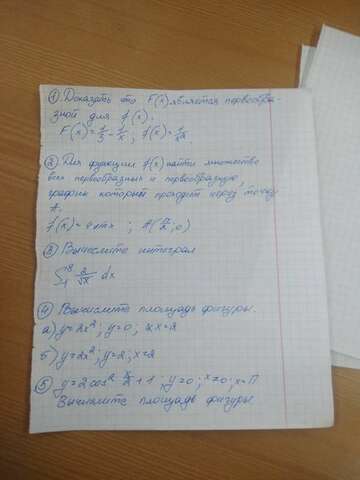 ① Доказать что F(x) является первообра-
зной для f(x).
F(x) = 1/3 - 1/x ; f(x) = 1/x²
② Для функции f(x) найти множество
всех первообразных и первообразную,
график которой проходит через точку
A.
③ Вычислите интеграл
④ Вычислите площадь фигуры.
а) y=2x²; y=0; x=2
б) y=2x²; y=2; x=2
⑤ y=2cos² x/2 + 1; y=0; x=0; x=П
Вычислите площадь фигуры